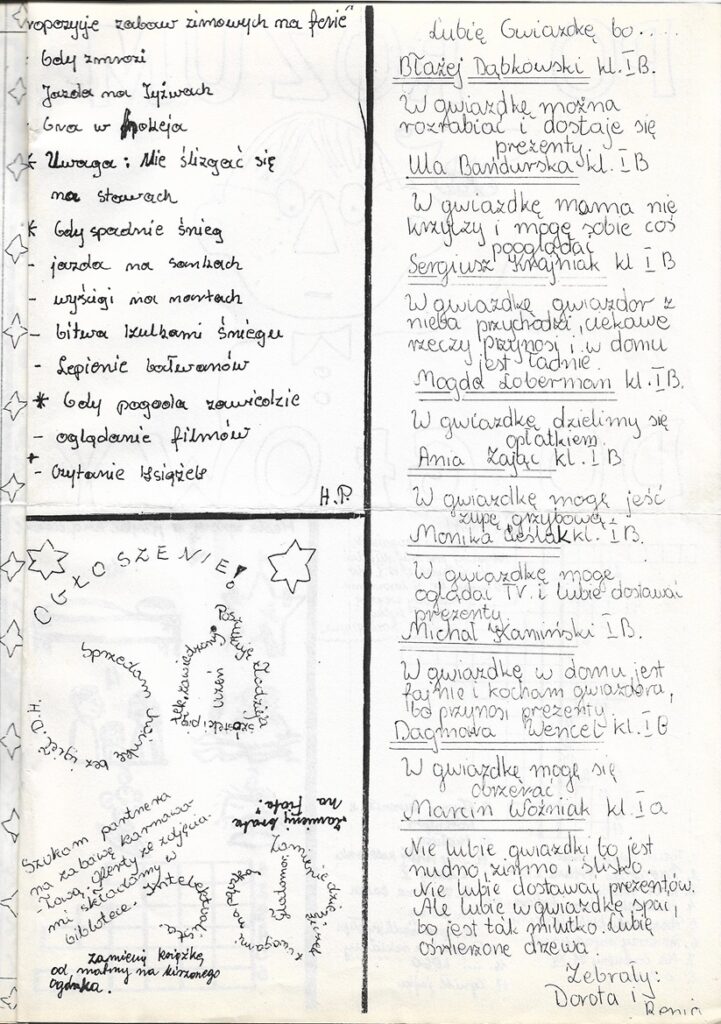 ropozycje zabaw zimowych na ferie"
- Gdy zmrozi
Jazda na Łyżwach
- Gra w hokeja
* Uwaga: Nie ślizgać się
na stawach
* Gdy spadnie śnieg
- jazda na sankach
- wyścigi na nartach
- bitwa kulkami śniegu
- Lepienie bałwanów
* Gdy pogoda zawiedzie
- oglądanie filmów
- Czytanie książek
H.P.
OGŁOSZENIE!
Sprzedam choinkę bez igieł. D.H.
Poszukuję złodzieja
Uczeń
Szukam partnera
na zabawę karnawa-
- łową. Oferty ze zdjęcia-
mi składamy w
bibliotece. Intelektualistka.
Zamienię brata
na Fiata!
Zamienię książkę
od mamy na kiszonego
ogórka.
Lubię Gwiazdkę bo.....
Błażej Dąbkowski kl. I B.
W gwiazdkę można
rozrabiać i dostaje się
prezenty.
Ula Bańdurska kl. I B
W gwiazdkę mama nie
krzyczy i mogę sobie coś
pooglądać
Sergiusz Krajniak kl I B
W gwiazdkę gwiazdor z
nieba przychodzi, ciekawe
rzeczy przynosi i w domu
jest ładnie.
Magda Loberman kl. I B.
W gwiazdkę dzielimy się
opłatkiem.
Ania Zając kl. I B
W gwiazdkę mogę jeść
zupę grzybową.
Monika Cieślak kl. I B.
W gwiazdkę mogę
oglądać TV. i lubię dostawać
prezenty
Michał Kamiński I B.
W gwiazdkę w domu jest
fajnie i kocham gwiazdora,
bo przynosi prezenty.
Dagmara Wencel kl. I B
W gwiazdkę mogę się
obżerać.
Marcin Woźniak kl. I a
Nie lubię gwiazdki bo jest
nudno, zimno i ślisko.
Nie lubię dostawać prezentów.
Ale lubię w gwiazdkę spać,
bo jest tak milutko. Lubię
ośnieżone drzewa
Zebrały:
Dorota i
Renia